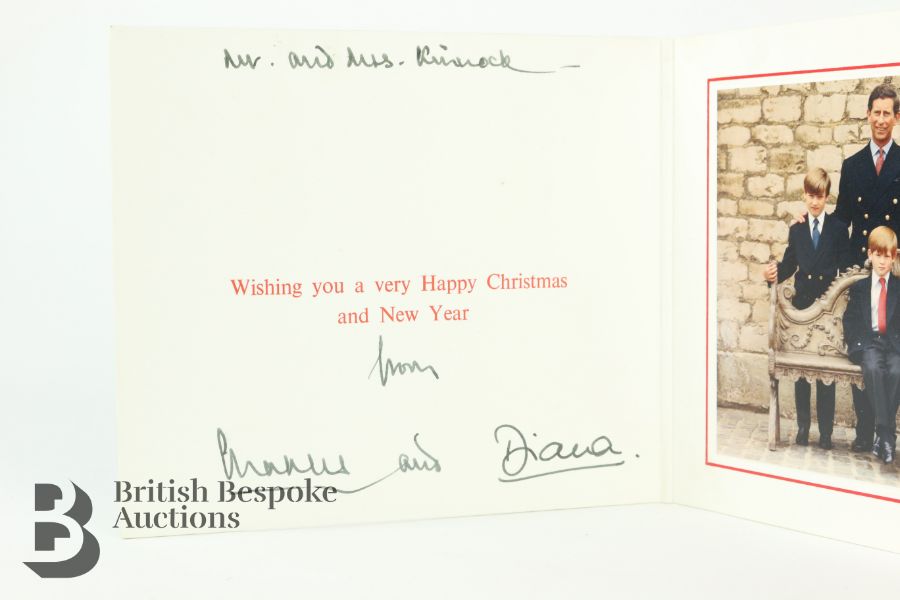 Mr. and Mrs. Kinnock
Wishing you a very Happy Christmas
and New Year
from
Charles and Diana.
British Bespoke
Auctions
B